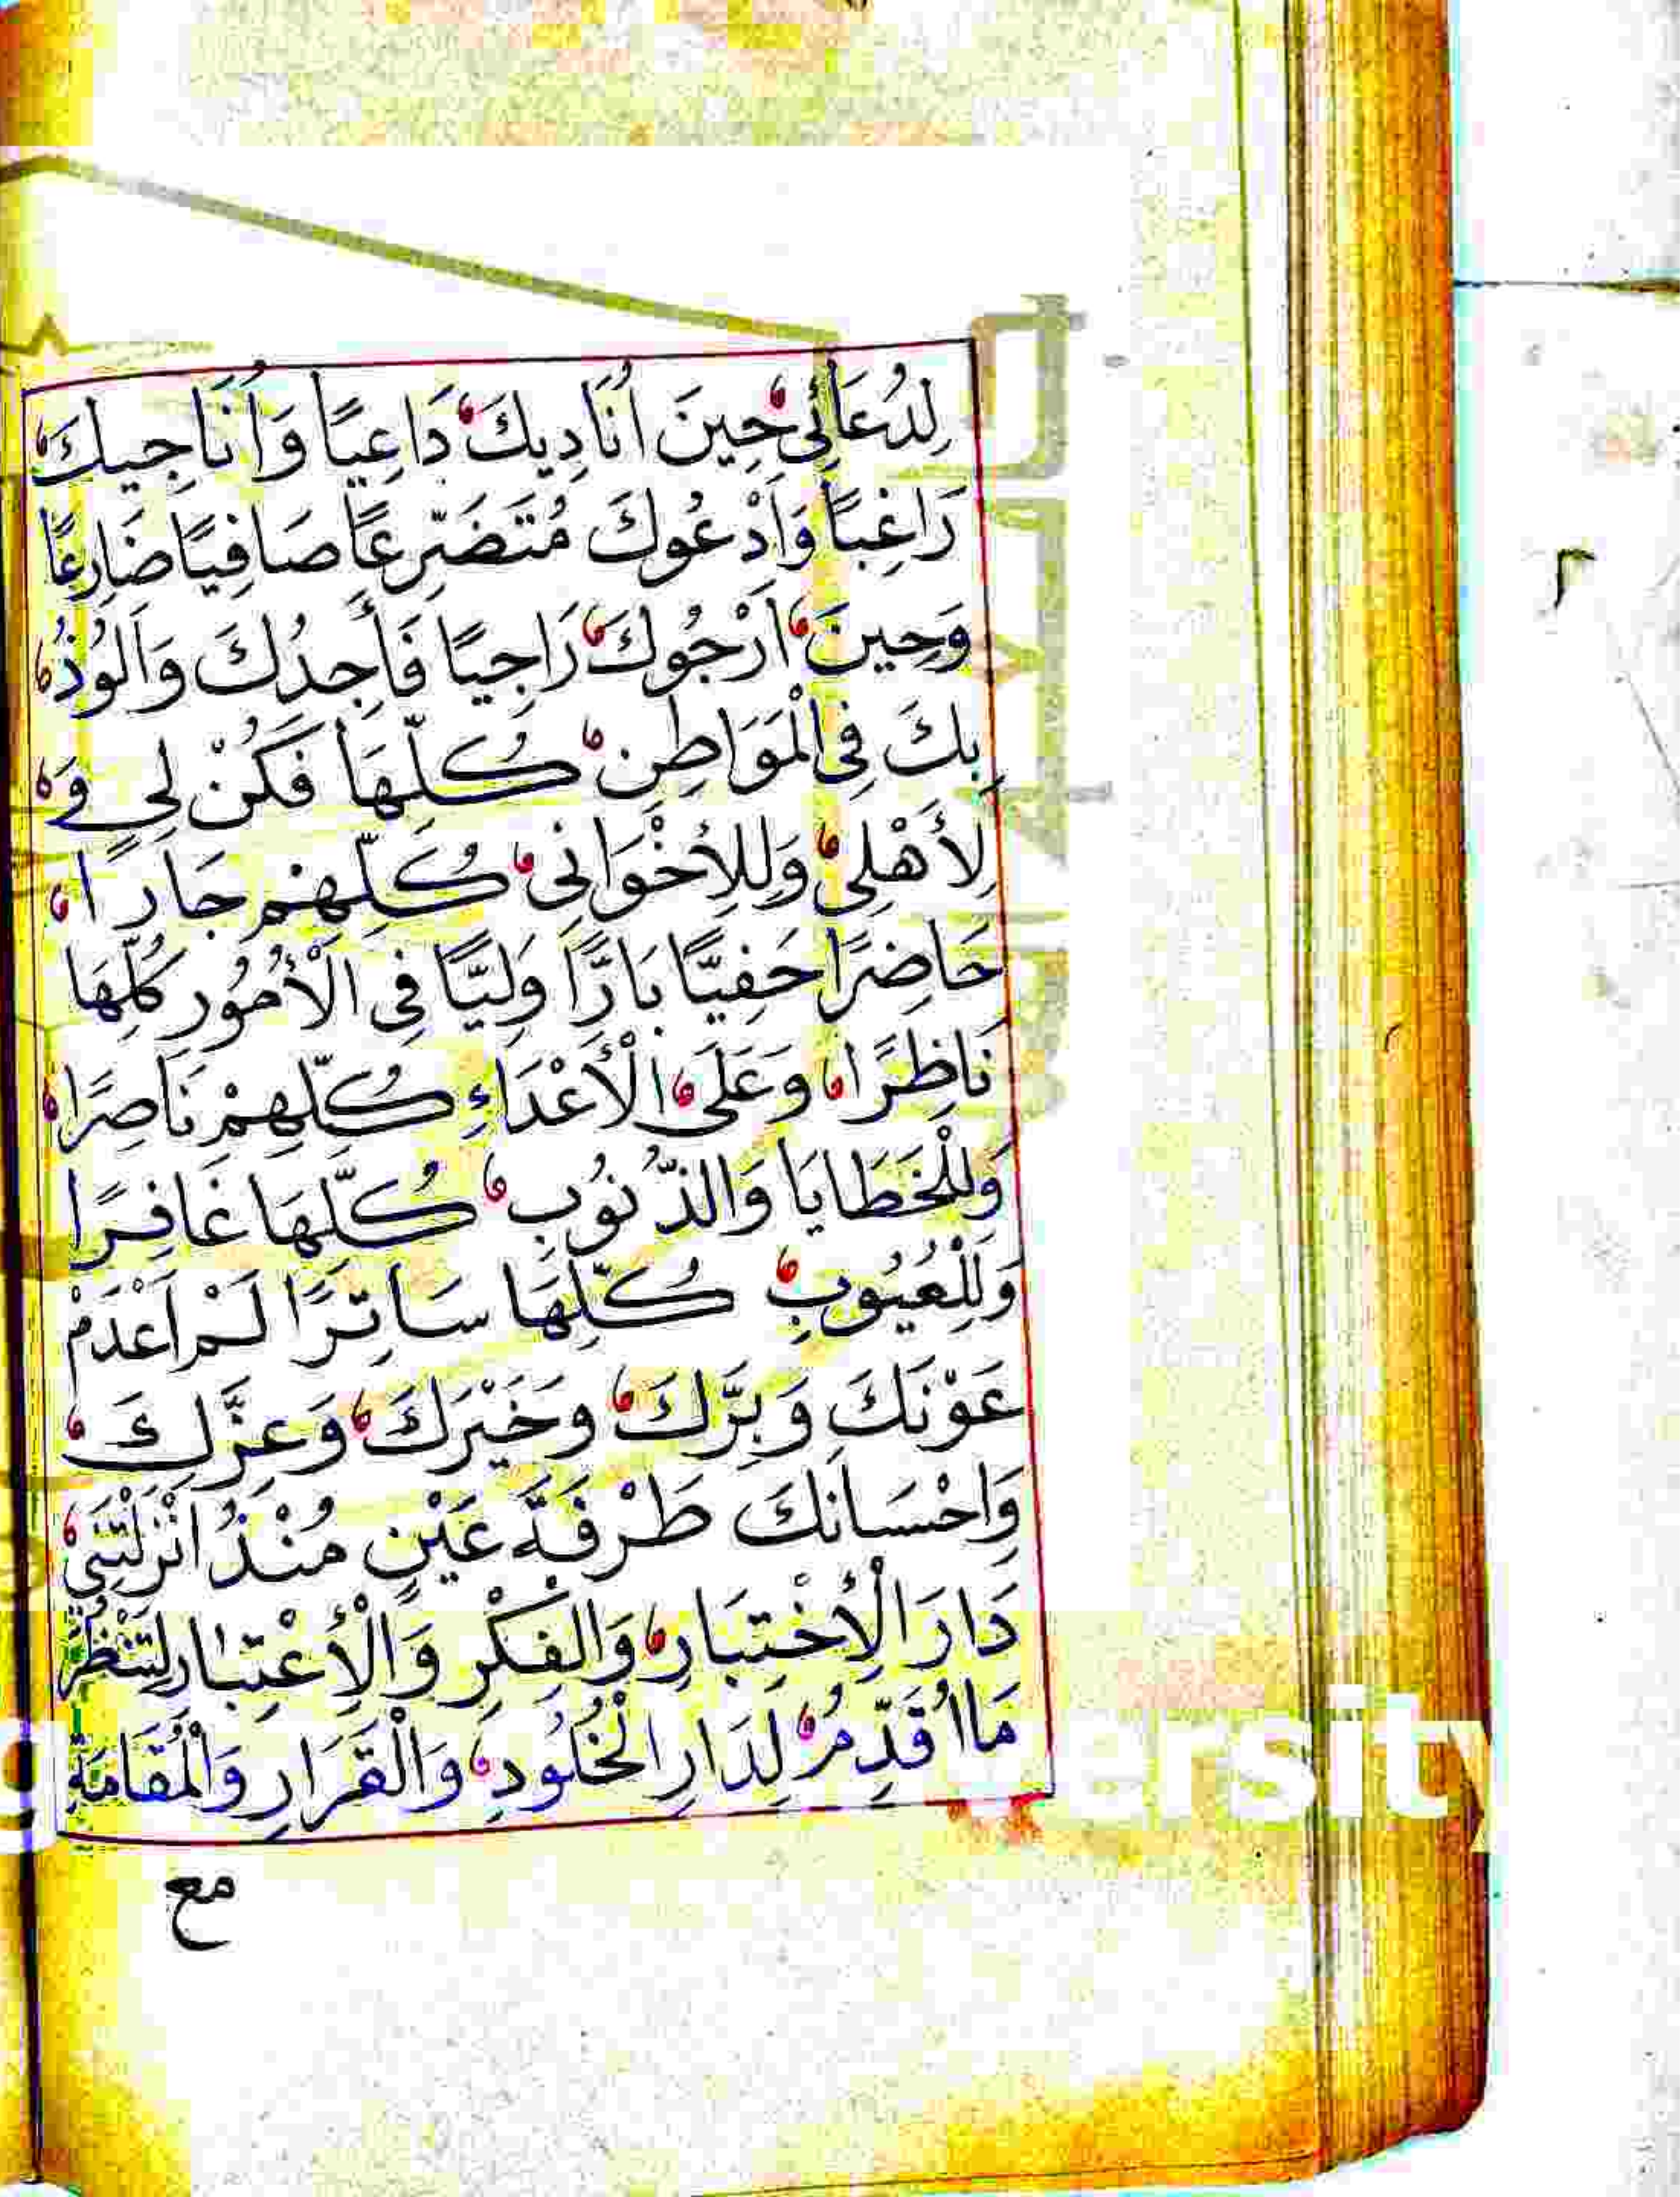 لِدُعَائِى حِينَ اُنَادِيكَ دَاعِيًا وَاُنَاجِيكَ
رَاغِبًا وَاَدْعُوكَ مُتَضَرِّعًا صَافِيًا ضَارِعًا
وَحِينَ اَرْجُوكَ رَاجِيًا فَأَجِدُكَ وَاَلُوذُ
بِكَ فِى الْمَوَاطِنِ كُلِّهَا فَكُنْ لِى وَ
لِأَهْلِى وَلِلْاِخْوَانِى كُلِّهِمْ جَارًا
حَاضِرًا حَفِيًّا بَارًّا وَلِيًّا فِى الْأُمُورِ كُلِّهَا
نَاظِرًا وَعَلَى الْأَعْدَاءِ كُلِّهِمْ نَاصِرًا
وَلِلْخَطَايَا وَالذُّنُوبِ كُلِّهَا غَافِرًا
وَلِلْعُيُوبِ كُلِّهَا سَاتِرًا لَمْ اَعْدَمْ
عَوْنَكَ وَبِرَّكَ وَخَيْرَكَ وَعِزَّكَ
وَاِحْسَانَكَ طَرْفَةَ عَيْنٍ مُنْذُ اَنْزَلْتَنِى
دَارَ الْاِخْتِبَارِ وَالْفِكْرِ وَالْاِعْتِبَارِ لِتَنْظُرَ
مَا اُقَدِّمُ لِدَارِ الْخُلُودِ وَالْقَرَارِ وَالْمُقَامَةِ
مع
٢
ersity